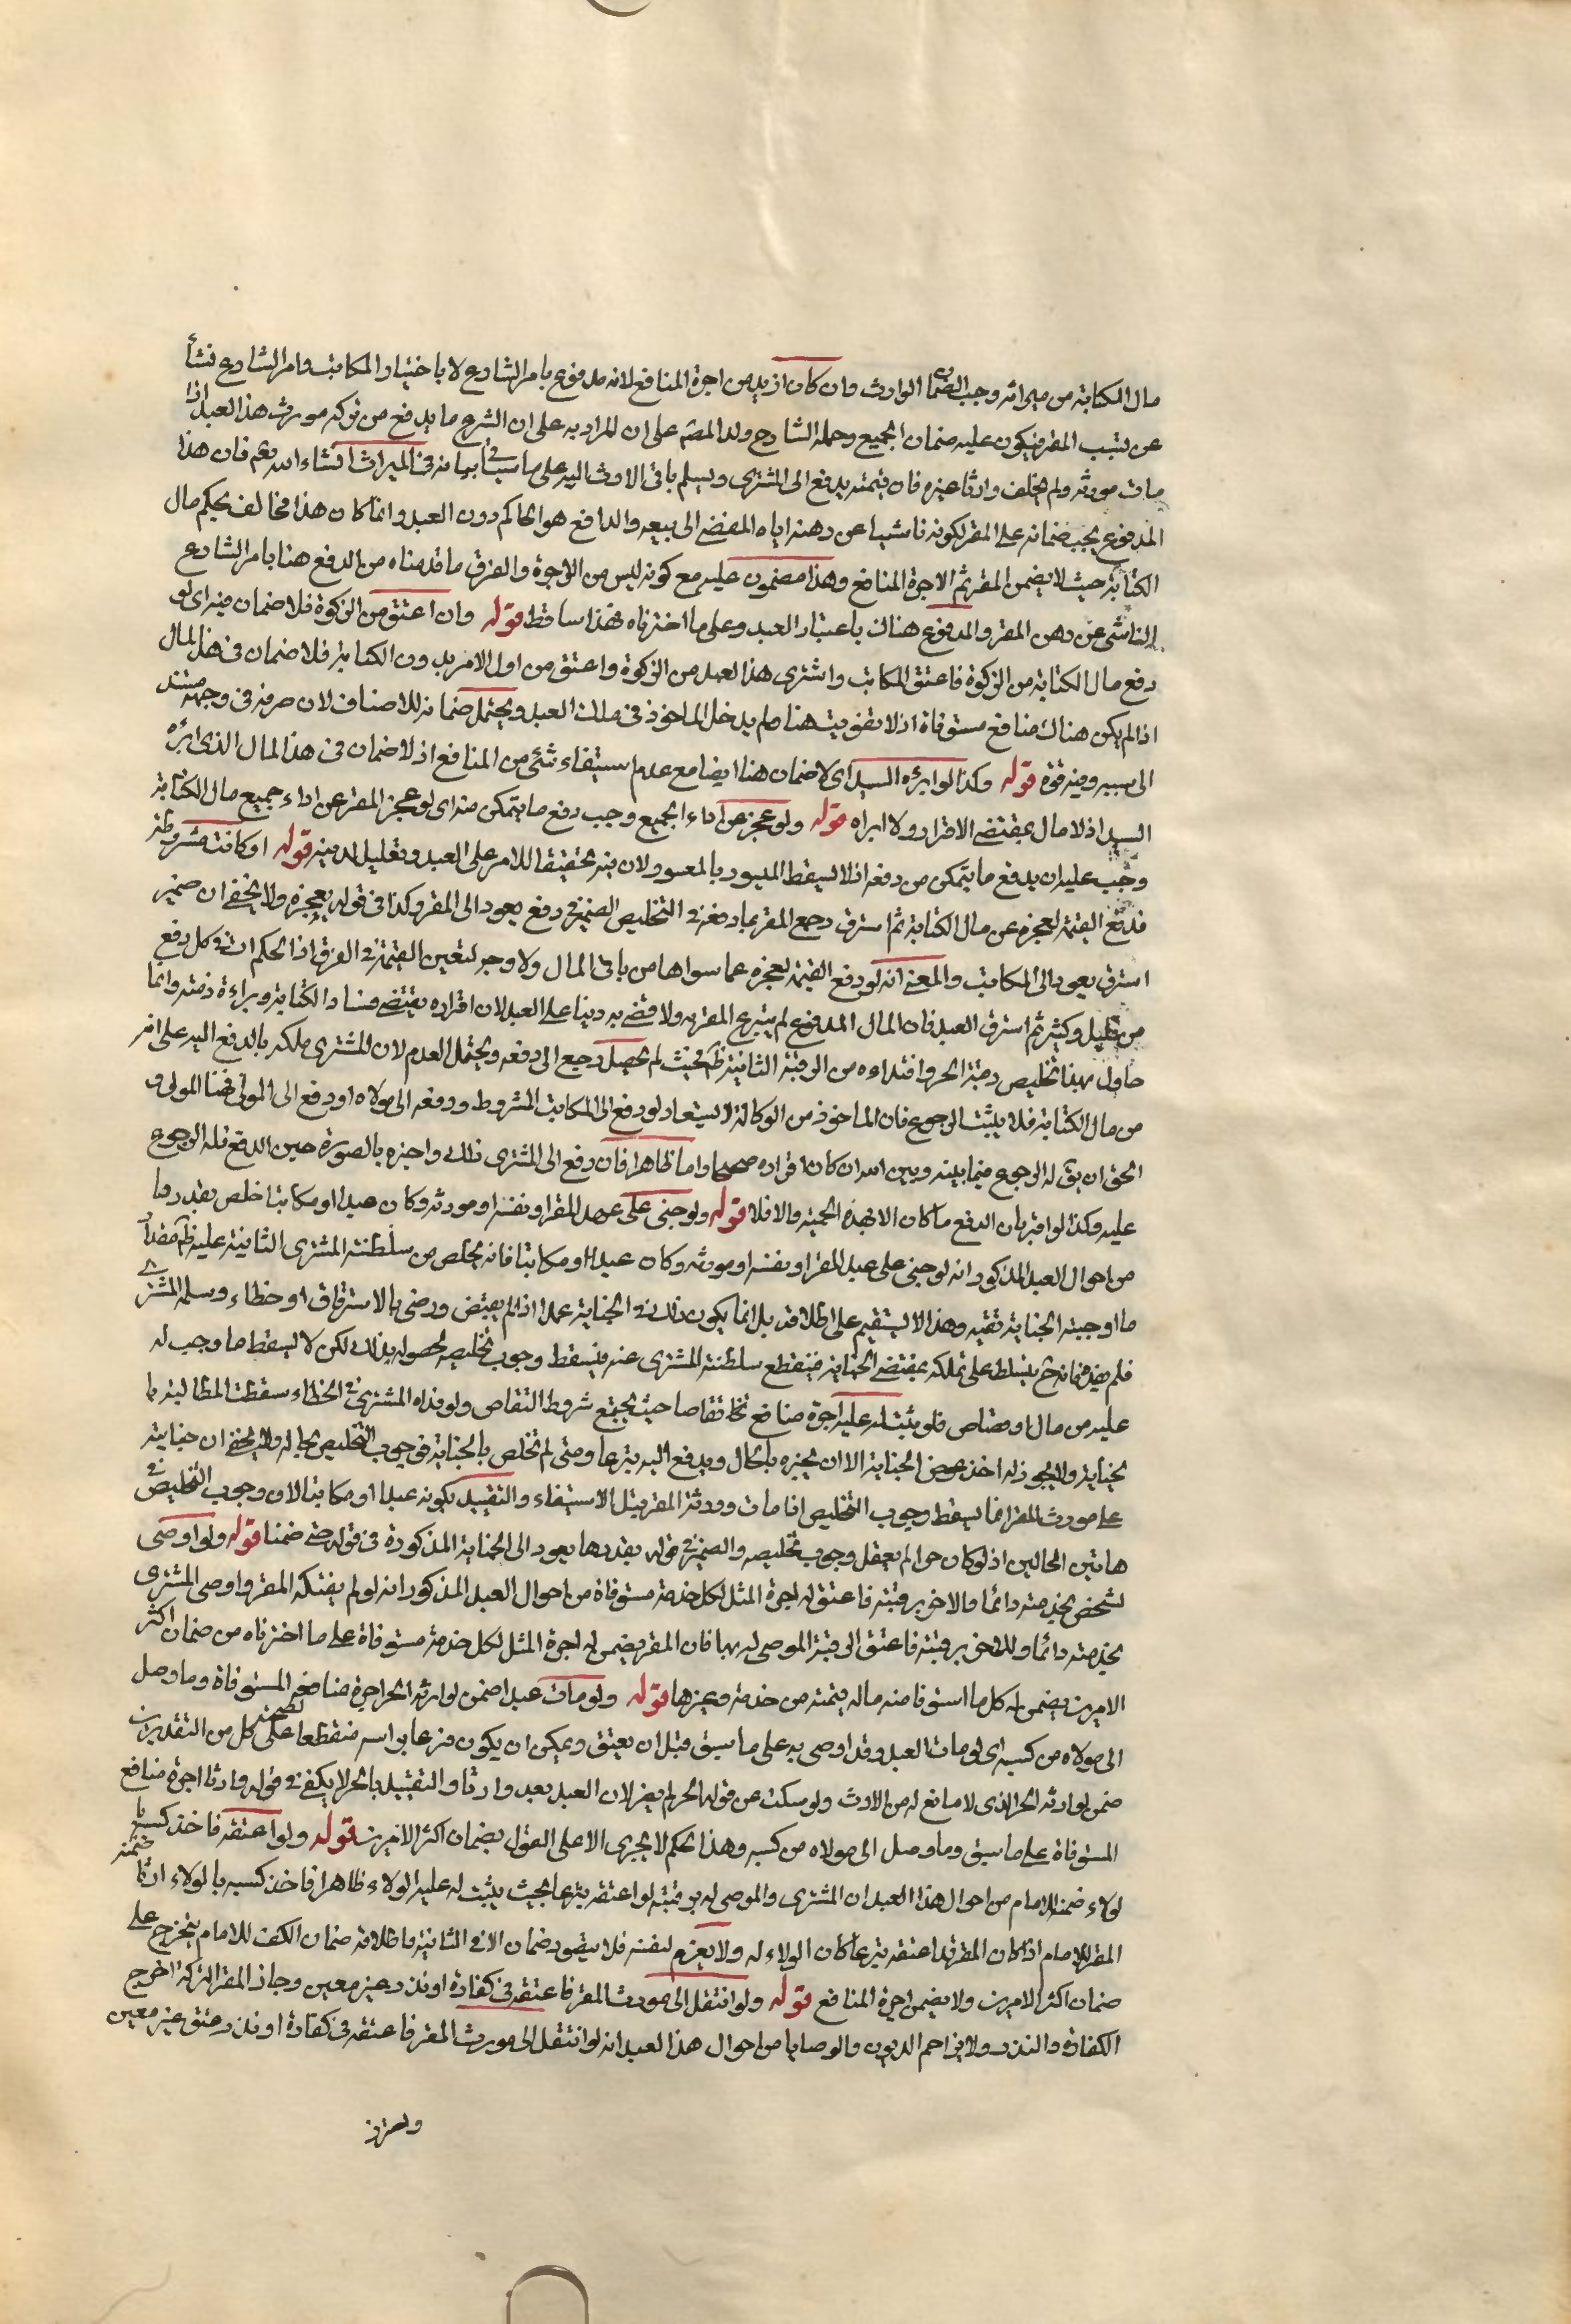 مال الكتابة من ميراثه وجب الضمان الوارث وان كان ازيد من اجرة المنافع لانه مدفوع بامر الشارع لا باختيار المكاتب وامر الشارع نشأ
عن تسبب المقر فيكون عليه ضمان الجميع وحمله الشارح ولد المصّ على ان المراد به على ان الشرع ما يدفع من تركه مورث هذا العبد اذا
مات مورثه ولم يخلف وارثا غيره فان قيمته يدفع الى المشترى ويسلم باقى الارث اليه على ما سيأتى بيانه فى الميراث انشاء الله تعم فان هذا
المدفوع يجب ضمانه على المقر لكونه ناشيا عن رهنه اياه المفضى الى بيعه والدافع هو الحاكم دون العبد وانما كان هذا مخالف لحكم مال
الكتابة حيث لا يضمن المقر ثم الا جرة المنافع وهذا مضمون عليه مع كونه ليس من الاجرة والفرق ما قدمناه من الدفع هنا بامر الشارع
الناشى عن رهن المقر والمدفوع هناك باعتبار العبد وعلى ما اخترناه فهذا ساقط قوله وان اعتق من الزكوة فلا ضمان فيه اى لو
دفع مال الكتابة من الزكوة فاعتق المكاتب واشترى هذا العبد من الزكوة واعتق من اول الامر بدون الكتابة فلا ضمان فى هذا المال
اذا لم يكن هناك منافع مستوفاة اذ لا تفويت هنا ولم يدخل الماخوذ فى ملك العبد ويحتمل ضمانه للاصناف لان صرفه فى وجهه مستند
الى سببه وفيه قوة قوله وكذا لو ابرءه السيد اى لا ضمان هنا ايضا مع عدم استيفاء شئ من المنافع اذ لا ضمان فى هذا المال الذى ابرءه
السيد اذ لا مال بمقتضى الاقرار ولا ابراء قوله ولو عجز عن اداء الجميع وجب دفع ما يتمكن منه اى لو عجز المقر عن اداء جميع مال الكتابة
وجب عليه ان يدفع ما يتمكن من دفعه اذ لا يسقط الميسور بالمعسور ولان فيه تحقيقا للامر على العبد وتقليل لدينه قوله او كانت مشروطة
فدفع القيمة لعجزه عن مال الكتابة ثم استرق رجع المقر بما دفعه فى التخليص الضمير فى دفع يعود الى المقر وكذا فى قوله بعجزه ولا يخفى ان ضمير
استرق يعود الى المكاتب والمعنى انه لو دفع القيمة لعجزه عما سواها من باقى المال ولا وجه لتعين القيمة فى الفرق اذ الحكم ات فى كل دفع
من قليل وكثير ثم استرق العبد فان المال المدفوع لم يتبرع المقر به ولا قضى به دينا على العبد لان اقراره يقتضى فساد الكتابة وبراءة ذمته وانما
حاول بهذا تخليص رقبة الحر وافتداءه من الرقية الثانية ظم فحيث لم يحصل رجع الى دفعه ويحتمل العدم لان المشترى ملكه بالدفع اليه على انه
من مال الكتابة فلا يثبت الرجوع فان الماخوذ من الوكالة لا يستعاد لو دفع الى المكاتب المشروط ودفعه الى مولاه او دفع الى المولى هنا المولى و
الحق ان يق له الرجوع فيما بينه وبين الله ان كان اقراره صحيحا واما ظاهرا فان دفع الى المشترى ذلك واخبره بالصورة حين الدفع فله الرجوع
عليه وكذا لو اقر بان الدفع ما كان الا بهذه الجهة والا فلا قوله ولو جنى على عبد المقر او نفسه او مورثه وكان عبدا او مكاتبا خلص بقدرها
من احوال العبد المذكور انه لو جنى على عبد المقر او نفسه او مورثه وكان عبدا او مكاتبا فانه يخلص من سلطنة المشترى الثانية عليه ظم مقدار
ما اوجبته الجناية تقيه وهذا لا يستقيم على اطلاقه بل انما يكون ذلك فى الجناية عمدا اذا لم يقتص ورضى بالاسترقاق او خطاء وسلمه المشترى
فلم يفده فانه ح يتسلط على تملكه بمقتضى الجناية فتقطع سلطنة المشترى عنه فيسقط وجوب تخليصه لحصوله بذلك لكن لا يسقط ما وجب له
عليه من مال او قصاص فلو يثبت له عليه اجرة منافع تخا تقاصا حيث يجتمع شروط التقاص ولو فداه المشترى فى الخطاء سقطت المطالبة با
لجناية ولا يجوز له اخذ عوض الجناية الا ان يخبره بالحال ويدفع اليه تبرعا ومتى لم تخلص بالجناية فوجوب التخليص بحاله ولا يخفى ان جناية
على مورث المقر انما يسقط وجوب التخليص اذا مات وورثه المقر قبل الاستيفاء والتقييد بكونه عبدا او مكاتبا لان وجوب التخليص فى
هاتين الحالين اذ لو كان حرا لم يعقل وجوب تخليصه والضمير فى قوله بقدرها يعود الى الجناية المذكورة فى قوله جنى ضمنا قوله ولو اوصى
لشخص بخدمته دائما والاخر برقبته فاعتق له اجرة المثل لكل خدمة مستوفاة من احوال العبد المذكور انه لو لم يفتكه المقر واوصى المشترى
بخدمته دائما وللاخر برقبته فاعتق الرقبة الموصى له بها فان المقر يضمن له اجرة المثل لكل خدمة مستوفاة على ما اخترناه من ضمان اكثر
الامرين يضمن له كل ما استوفا منه ماله قيمته من خدمة وغيرها قوله ولو مات عبدا ضمن لوارثه الحر اجرة منافعه المستوفاة وما وصل
الى مولاه من كسبه اى لو مات العبد وقد اوصى به على ما سبق قبل ان يعتق ويمكن ان يكون فرعا براسه منقطعا على كل من التقديرين
ضمن لوارثه الحر الذى لا مانع له من الارث ولو سكت عن قوله الحر لم يضر لان العبد يعد وارثا والتقييد بالحر لا يكفى فى قوله وارثا اجرة منافع
المستوفاة على ما سبق وما وصل الى مولاه من كسبه وهذا الحكم لا يجرى الا على القول بضمان اكثر الامرين قوله ولو اعتقه فاخذ كسبه با
لولاء ضمنه للامام من احوال هذا العبد ان المشترى والموصى له برقبته لو اعتقه تبرعا بحيث يثبت له عليه الولاء ظاهرا فاخذ كسبه بالولاء ارثا ضمنه
المقر للامام اذا كان المقر قد اعتقه تبرعا كان الولاء له ولا يغرم لنفسه فلا يتصور ضمان الا فى الثانية واطلاقه ضمان الكسب للامام يتخرج على
ضمان اكثر الامرين ولا يضمن اجرة المنافع قوله ولو انتقل الى مورث المقر فاعتقه فى كفارة او نذر غير معين وجاز المقر التركة اخرج
الكفارة والنذر ولا يزاحم الديون والوصايا من احوال هذا العبد انه لو انتقل الى مورث المقر فاعتقه فى كفارة او نذر عتق غير معين